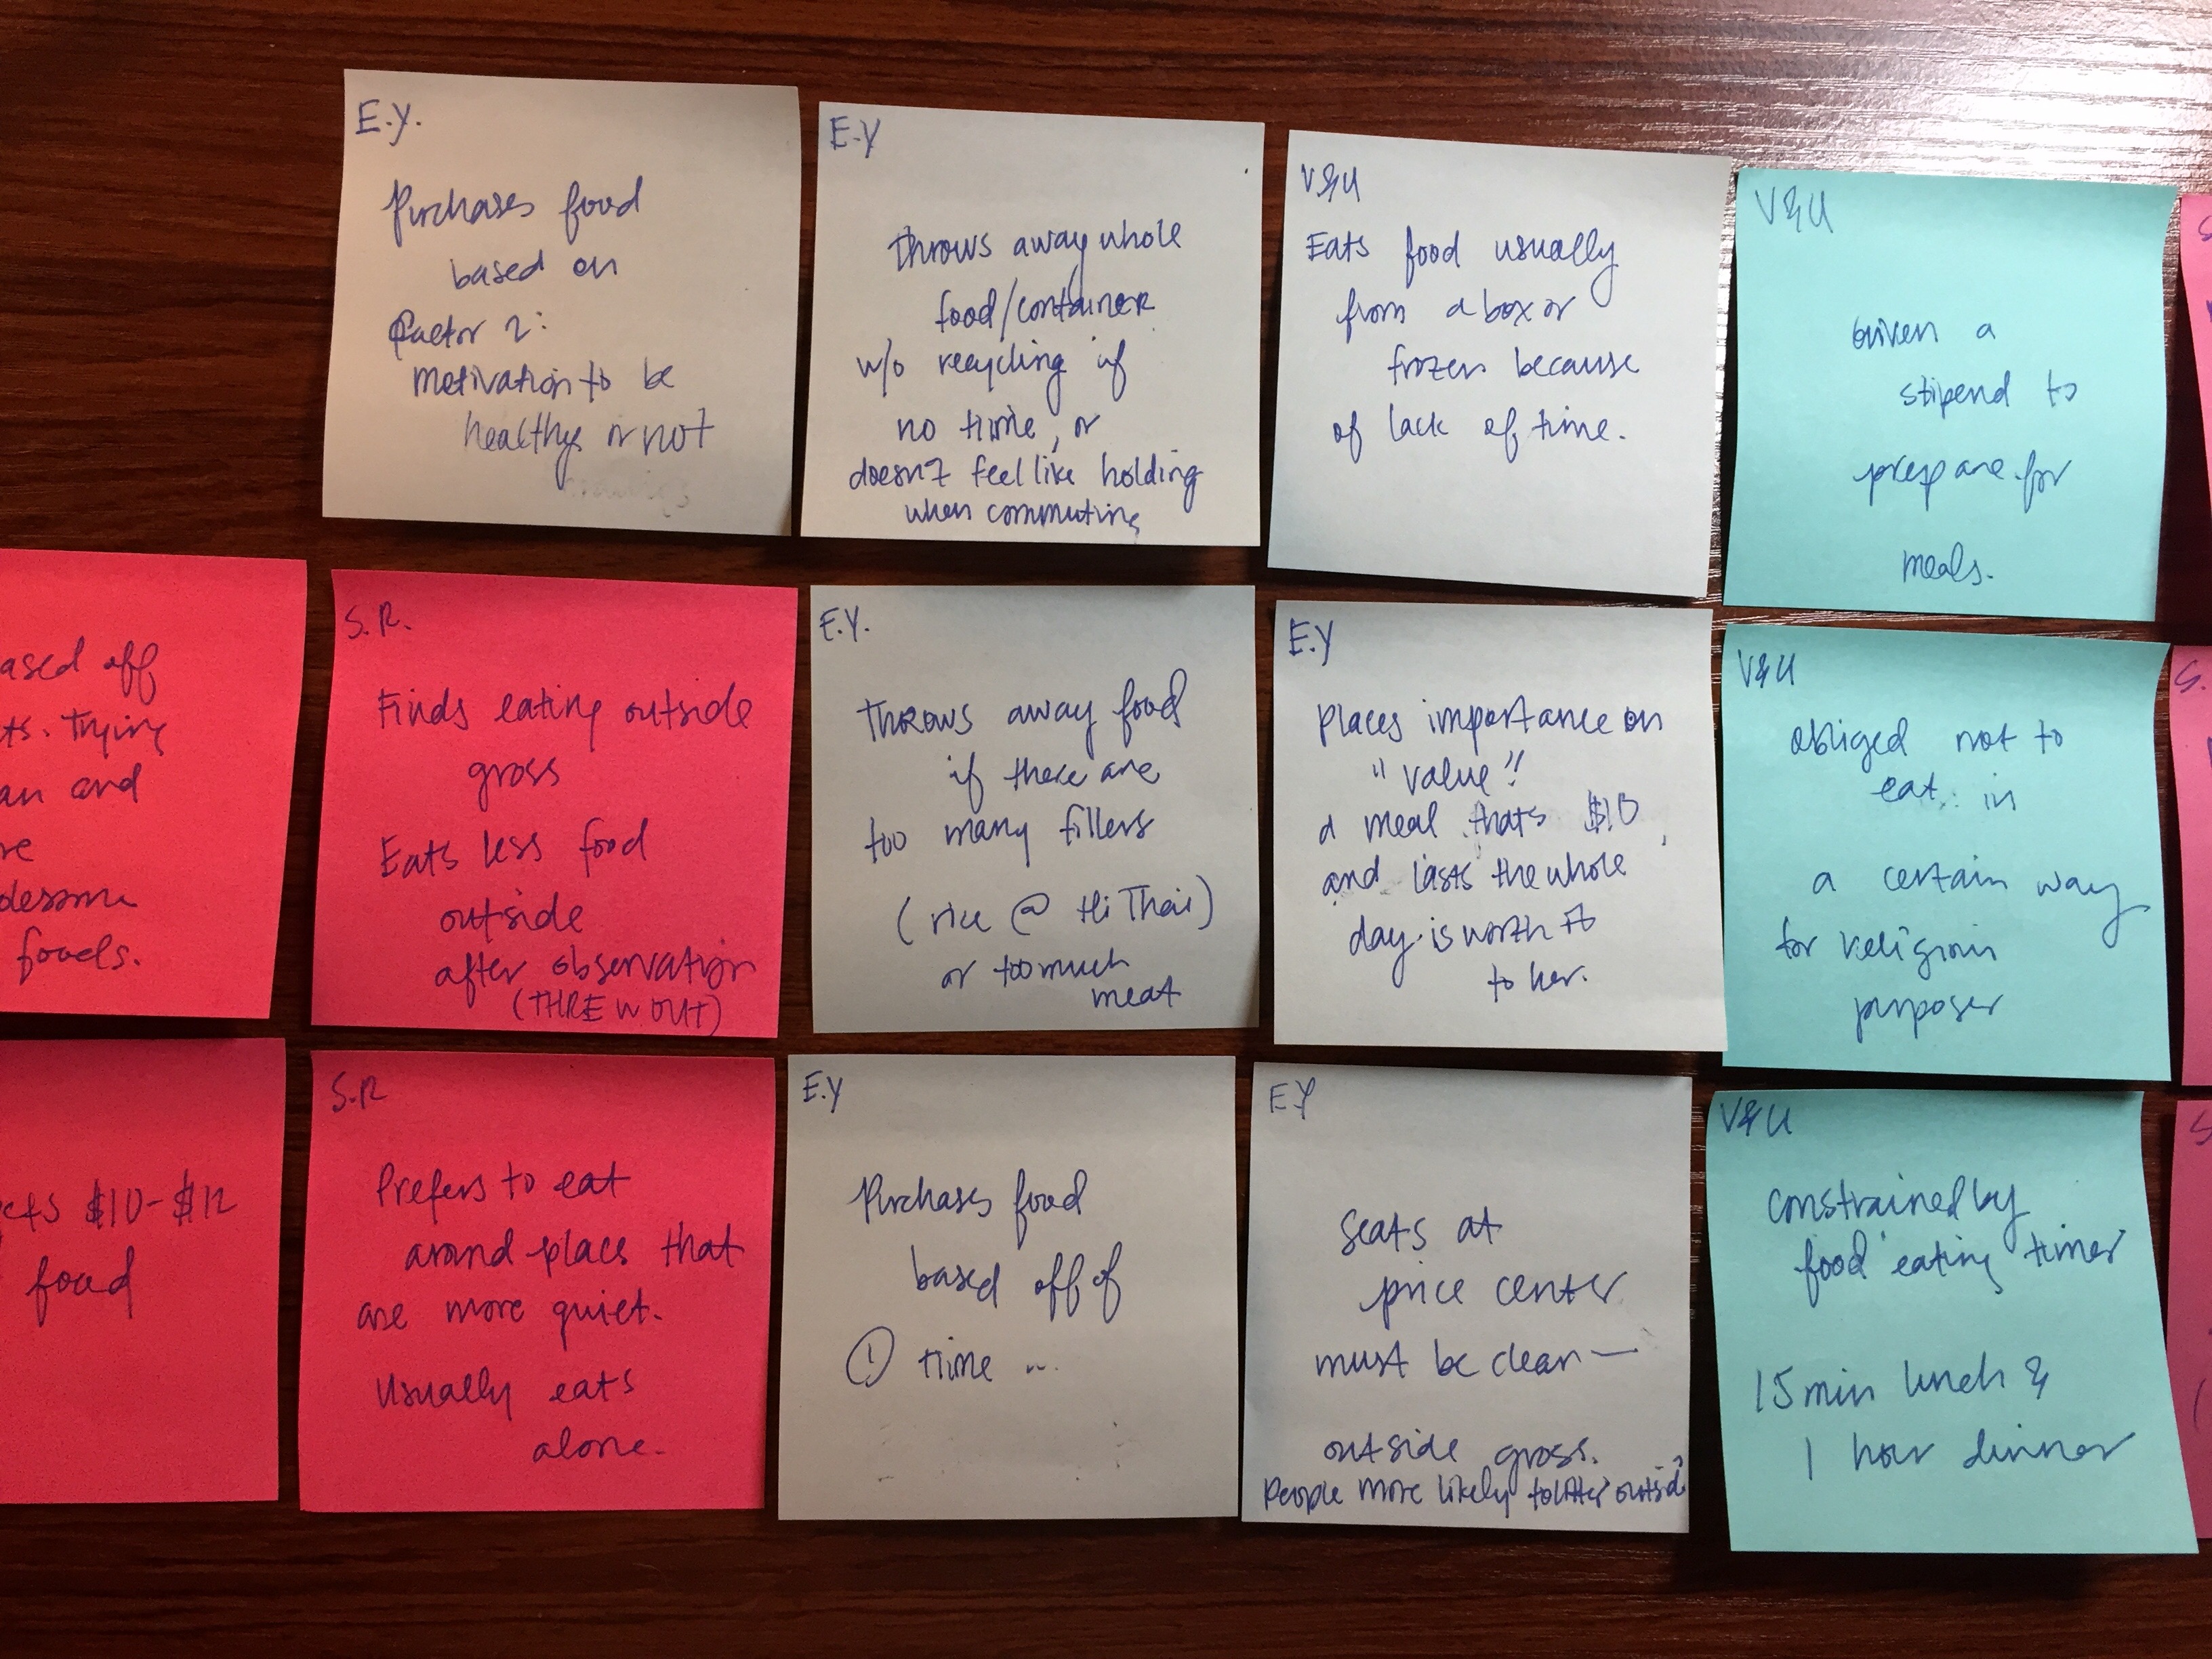 E.Y.
Purchases food
based on
factor 2:
motivation to be
healthy or not
E.Y
Throws away whole
food/container
w/o recycling if
no time, or
doesn't feel like holding
when commuting
V&U
Eats food usually
from a box or
frozen because
of lack of time.
V&U
Given a
stipend to
prepare for
meals.
ased off
ts. Trying
an and
re
lesome
foods.
S.R.
Finds eating outside
gross
Eats less food
outside
after observation
(THREW OUT)
E.Y.
Throws away food
if there are
too many fillers
(rice @ Hi Thai)
or too much
meat
E.Y
Places importance on
"value"
a meal thats $10
and lasts the whole
day is worth it
to her.
V&U
obliged not to
eat in
a certain way
for religion
purposes
S.
cts $10-$12
food
S.R
Prefers to eat
around places that
are more quiet.
Usually eats
alone.
E.Y
Purchases food
based off of
① time ...
E.Y
Seats at
price center
must be clean—
outside gross.
People more likely to litter outside
V&U
constrained by
food eating times
15 min lunch &
1 hour dinner